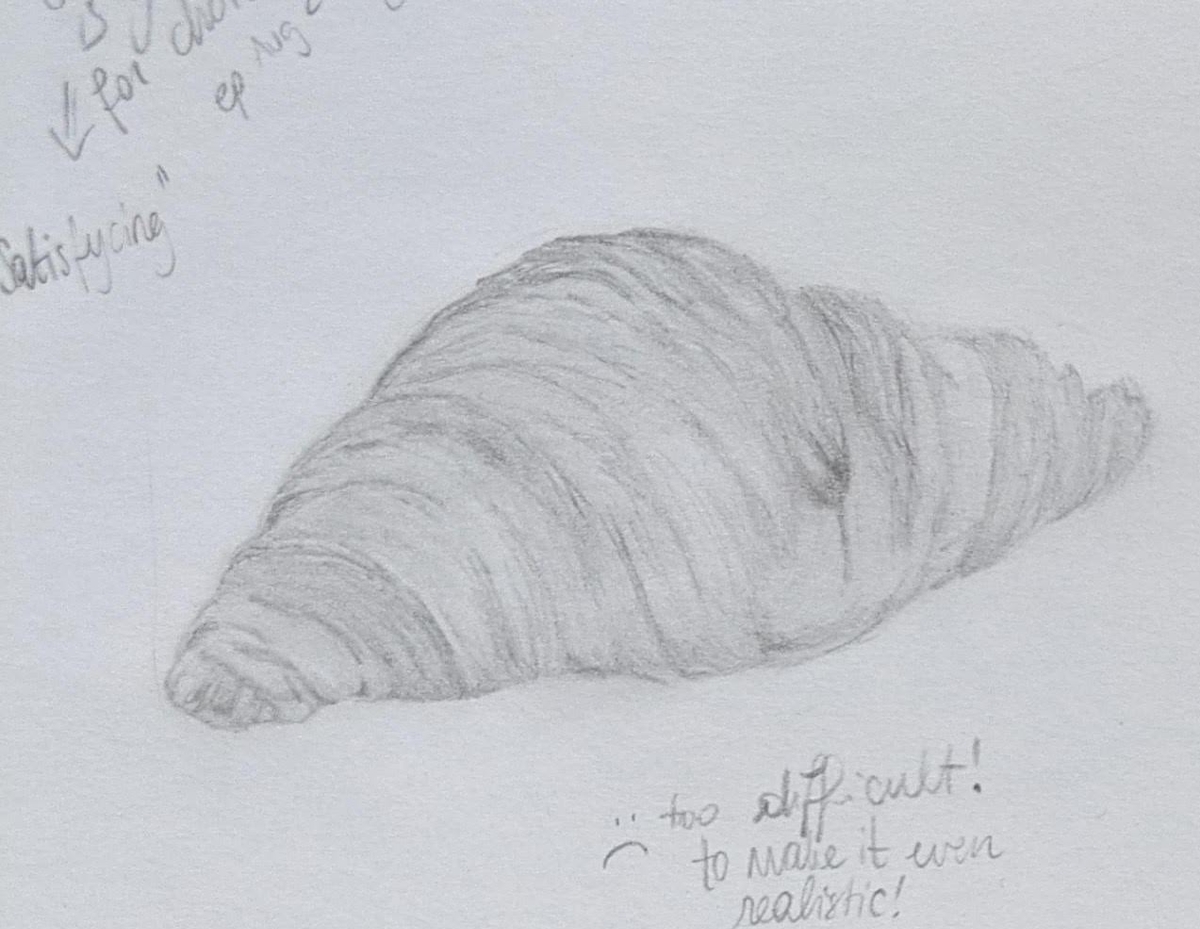 ↓ for
ep Aug
Satisfycing"
:( too difficult!
to make it even
realistic!